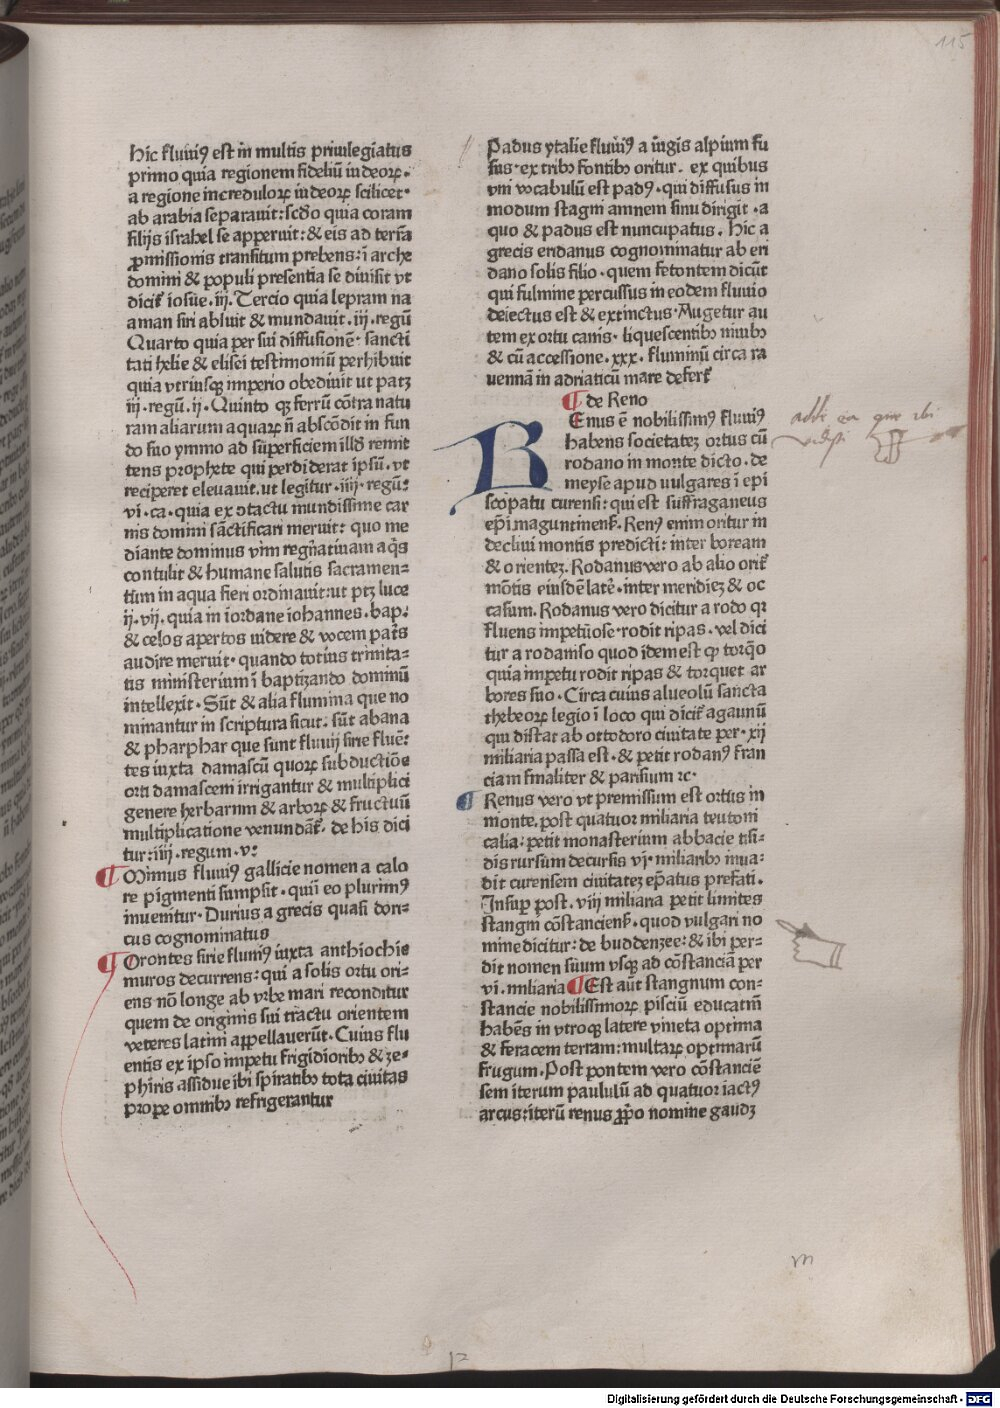 115
hic fluuiꝰ est in multis priuilegiatus
primo quia regionem fideliũ iudeoꝝ.
a regione incredulorꝝ iudeoꝝ scilicet.
ab arabia separauit: scd̃o quia coram
filijs israhel se apperuit: & eis ad terrã
ꝓmissionis transitum prebens: ĩ arche
domini & populi presentia se diuisit vt
dicit̃ iosũe. iij. Tercio quia lepram na
aman siri abluit & mundauit. iij. regũ
Quarto quia per sui diffusionẽ. sancti
tati helie & elisei testimoniũ perhibuit
quia vtriusqꝫ imperio obediuit ut patꝫ
iij. regũ. ij. Quinto qꝫ ferrũ cõtra natu
ram aliarum aquaꝝ ñ abscõdit in fun
do suo ymmo ad sũperficiem illd̃ remit
tens prophete qui perdiderat ipsũ. vt
reciperet eleuauit. ut legitur. iiij. regũ:
vi. ca. quia ex ɔtactu mundissime car
nis domini sãctificari meruit: quo me
diante dominus vim regñatiuam aq̃s
contulit & humane salutis sacramen-
tũm in aqua fieri ordinauit: ut ptꝫ luce
ij. vij. quia in iordane iohannes. bap:
& celos apertos uidere & vocem pat̃s
audire meruit. quando totius trinita-
tis ministerium ĩ baptizando dominũ
intellexit. Sũt & alia flumina que no
minantur in scriptura sicut: sũt abana
& pharphar que sunt fluuij sirie fluẽ-
tes iuxta damascũ quoꝝ subductiõe
orti damasceni irrigantur & multiplici
genere herbarum & arboꝝ & fructuũ
multiplicatione venundãt̃. de his dici
tur: iiij. regum. v:
¶ Minius fluuiꝰ gallicie nomen a calo
re pigmenti sumpsit. quũ eo plurimꝰ
inuenitur. Durius a grecis quasi dori-
cus cognominatus
¶ Orontes sirie fluuiꝰ iũxta anthiochie
muros decurrens: qui a solis ortu ori-
ens nõ longe ab vrbe mari reconditur
quem de originis sui tractu orientem
veteres latini appellauerũt. Cuius flu
entis ex ipso impetu frigidioribꝫ & ze-
phiris assidue ibi spiratibꝫ tota ciuitas
prope omnibꝫ refrigerantur
Padus ytalie fluuiꝰ a iũgis alpium fu
sus. ex tribꝫ fontibꝫ oritur. ex quibus
vni vocabulũ est padꝰ. qui diffusus in
modum stagni amnem sinu dirigit. a
quo & padus est nuncupatus. hic a
grecis eridanus cognominatur ab eri
dano solis filio. quem fetontem dicũt
qui fulmine percussus in eodem fluuio
deiectus est & extinctus. Augetur au
tem ex ortu canis. liquescentibꝫ niuibꝫ
& cũ accessione. xxx. fluminũ circa ra
uennã in adriaticũ mare defert̃
¶ de Reno
REnus ẽ nobilissimꝰ fluuiꝰ
habens societatez ortus cũ
rodano in monte dicto. de
meyse apud uulgares ĩ epi
scopatu curensi: qui est suffraganeus
ep̃i maguntinens̃. Renꝰ enim oritur in
decliui montis predicti: inter boream
& orientez. Rodanus vero ab alio orit̃
mõtis eiusdẽ latẽ. inter meridiez & oc
casum. Rodanus vero dicitur a rodo qꝛ
fluens impetũose. rodit ripas. vel dici
tur a rodaniso quod idem est qꝙ torq̃o
quia impetu rodit ripas & torquet ar
bores suo. Circa cuius alueolũ sancta
thebeoꝝ legio ĩ loco qui dicit̃ agaunũ
qui distat ab ottodoro ciuitate per. xij
miliaria passa est. & petit rodanꝰ fran
ciam finaliter & parisium ꝛc.
¶ Renus vero vt premissum est ortus in
monte. post quatuor miliaria teutoni
calia: petit monasterium abbacie tisi-
dis rursum decursis vj. miliaribꝫ inua-
dit curensem ciuitatez ep̃atus prefati.
Insuꝑ post. viij miliaria petit limites
stangni cõstanciens̃. quod vulgari no
mine dicitur: de buddenzee: & ibi per-
dit nomen sũum vsqꝫ ad cõstanciã per
vi. miliaria ¶ Est aũt stangnum con-
stancie nobilissimoꝝ pisciũ educatiũ
habẽs in vtroqꝫ latere vineta optima
& feracem terram: multaꝝ optimarũ
frugum. Post pontem vero cõstanciẽ
sem iterum paululũ ad quatuor iactꝰ
arcus: iterũ renus ꝓp̃o nomine gaudꝫ
Digitalisierung gefördert durch die Deutsche Forschungsgemeinschaft - DFG